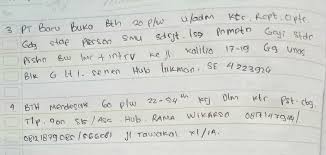 3. PT Baru Buka Bth 20 p/w u/adm ktr, Rcpt, Opte.
Gdg staf Person SMU sdrjt. lsg Pnmptn Gaji Stdr
Pishn Bw lmr + intrv ke jl kalilio 17-19 Gg Unas
Blk G H I. senen Hub lukman. SE 4223924
4 BTH Mendesak 60 p/w 22-54th krj Dlm ktr Pst-cbg
Tlp. non SE / Agc Hub. RAMA WIKARSO
0821879085 / jl Tawakal XI / A.